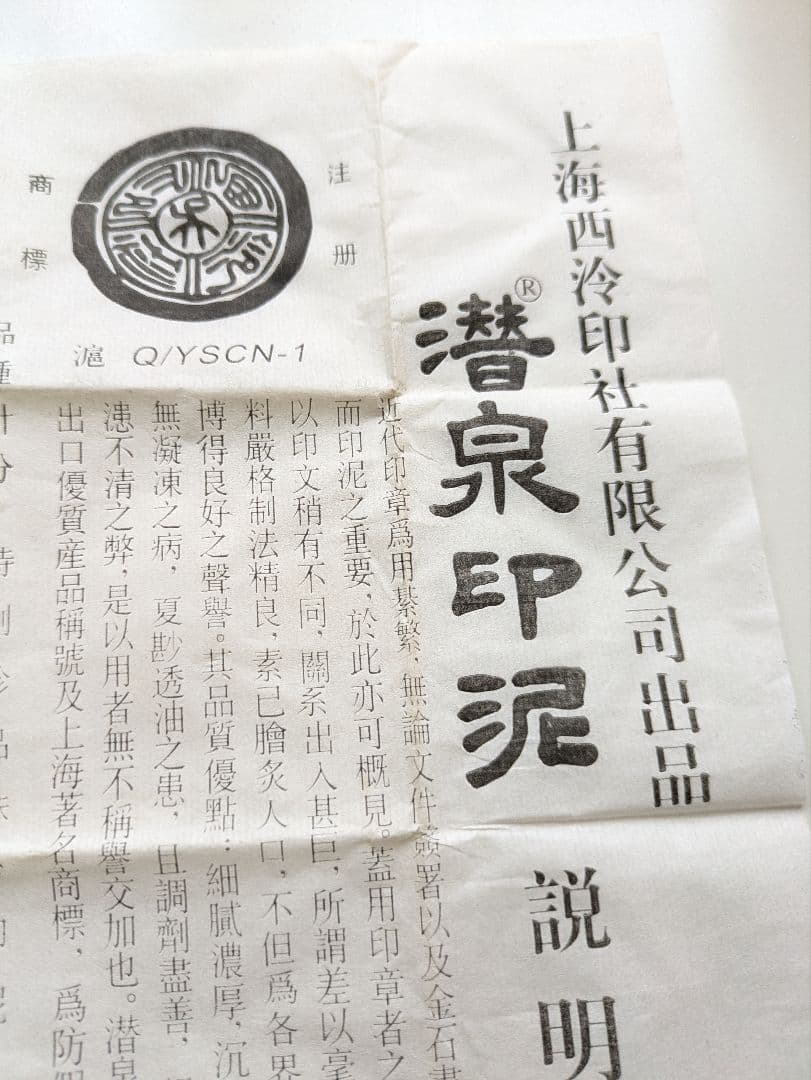 上海西泠印社有限公司出品
潛泉印泥®
説明
注册
商標
滬 Q/YSCN-1
近代印章爲用綦繁，無論文件簽署以及金石書
而印泥之重要，於此亦可概見。蓋用印章者之
以印文稍有不同，關系出入甚巨，所謂差以毫
料嚴格制法精良，素已膾炙人口，不但爲各界
博得良好之聲譽。其品質優點：細膩濃厚，沉
無凝凍之病，夏尠透油之患，且調劑盡善，
漶不清之弊，是以用者無不稱譽交加也。潜泉
出口優質産品稱號及上海著名商標，爲防假
品種